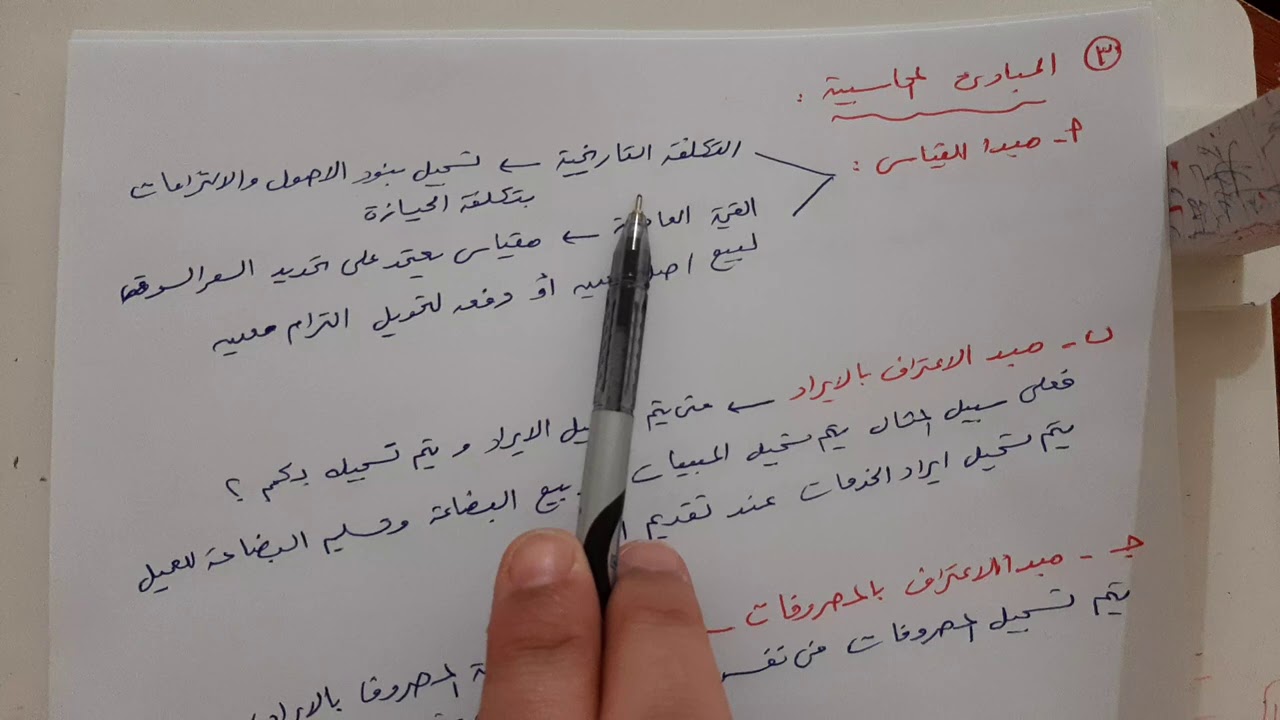 ٣ المبادئ المحاسبية :
أ- مبدا القياس :
التكلفة التاريخية ← تسجيل بنود الاصول والالتزامات
بتكلفة الحيازة
القيمة ← مقياس يعتمد على تحديد السعر السوقى
لبيع أو دفعه لتحويل التزام معين
ب- مبد الاعتراف بالايراد ← متى يتم الايراد و يتم تسجيله بكم ؟
فعلى سبيل المثال يتم تسجيل المبيعات بيع البضاعة وتسليم البضاعة للعميل
يتم تسجيل ايراد الخدمات عند تقديم
جـ- مبدا الاعتراف بالمصروفات
يتم تسجيل المصروفات فى نفس المصروفا بالايراد